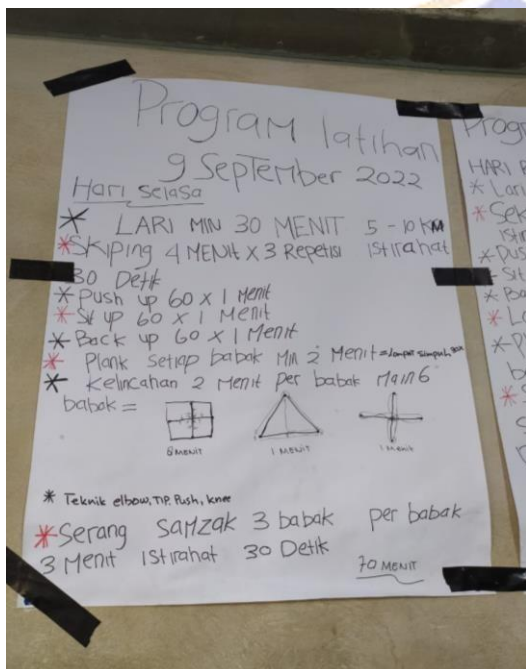 Program latihan
9 September 2022
Hari selasa
* LARI MIN 30 MENIT 5 - 10 KM
* Skiping 4 MENit x 3 Repetisi istirahat
30 Detik
* Push up 60 x 1 Menit
* Sit up 60 x 1 Menit
* Back up 60 x 1 Menit
* Plank setiap babak Min 2 Menit =
* Kelincahan 2 Menit per babak Main 6
babak =
MENIT 1 MENIT 1 Menit
* Teknik elbow, TIP. Push, knee
* Serang SAMZAK 3 babak per babak
3 Menit istirahat 30 Detik
70 MENIT
Progr
HARI
* Lari
* Sk
isti
* Pus
* Sit
* Ba
* L
* P
b
* S